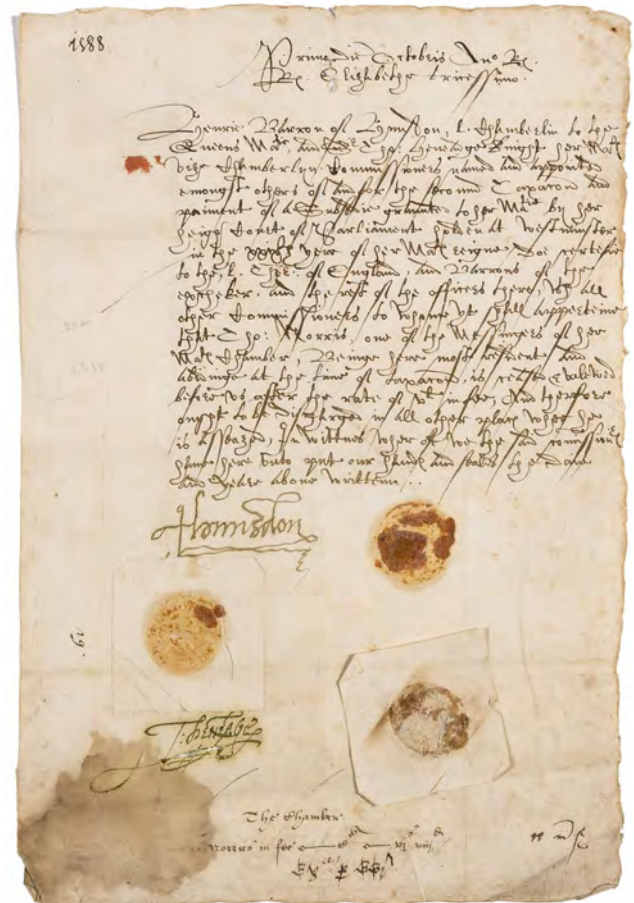 1588
Primo die Octobris Ano Rx
Rx Elizabethe tricessimo.
Henrie Barron of Hunsdon, L. Chamberlin to the
Queens Matie, and Tho: Heneadge Knight her Mats
vize Chamberlyn Commissioners named and appointed
emongst others of and for the second Taxacon and
paiment of a Subsedie graunted to her Matie by her
heigh Court of Parliament holden at Westminster
in the yere of her Mats reigne, Doe certefie
to the L. Thr: of England, and Barrons of the
exscheker, and the rest of the officers there, and all
other Commissioners to whome yt shall apperteine
that Tho: Norris, one of the Messingers of her
Mats Chamber, Beinge here most resident and
abidinge at the time of taxacon, is ceassed & valewed
before us after the rate of in fee, And therfore
ought to be discharged in all other places wher he
is assessed, In wittnes wher of we the said
have here unto put our hands and seales the daie
and yeare above written
Hunsdon
T: Heneage
The Chamber
Norris in fee